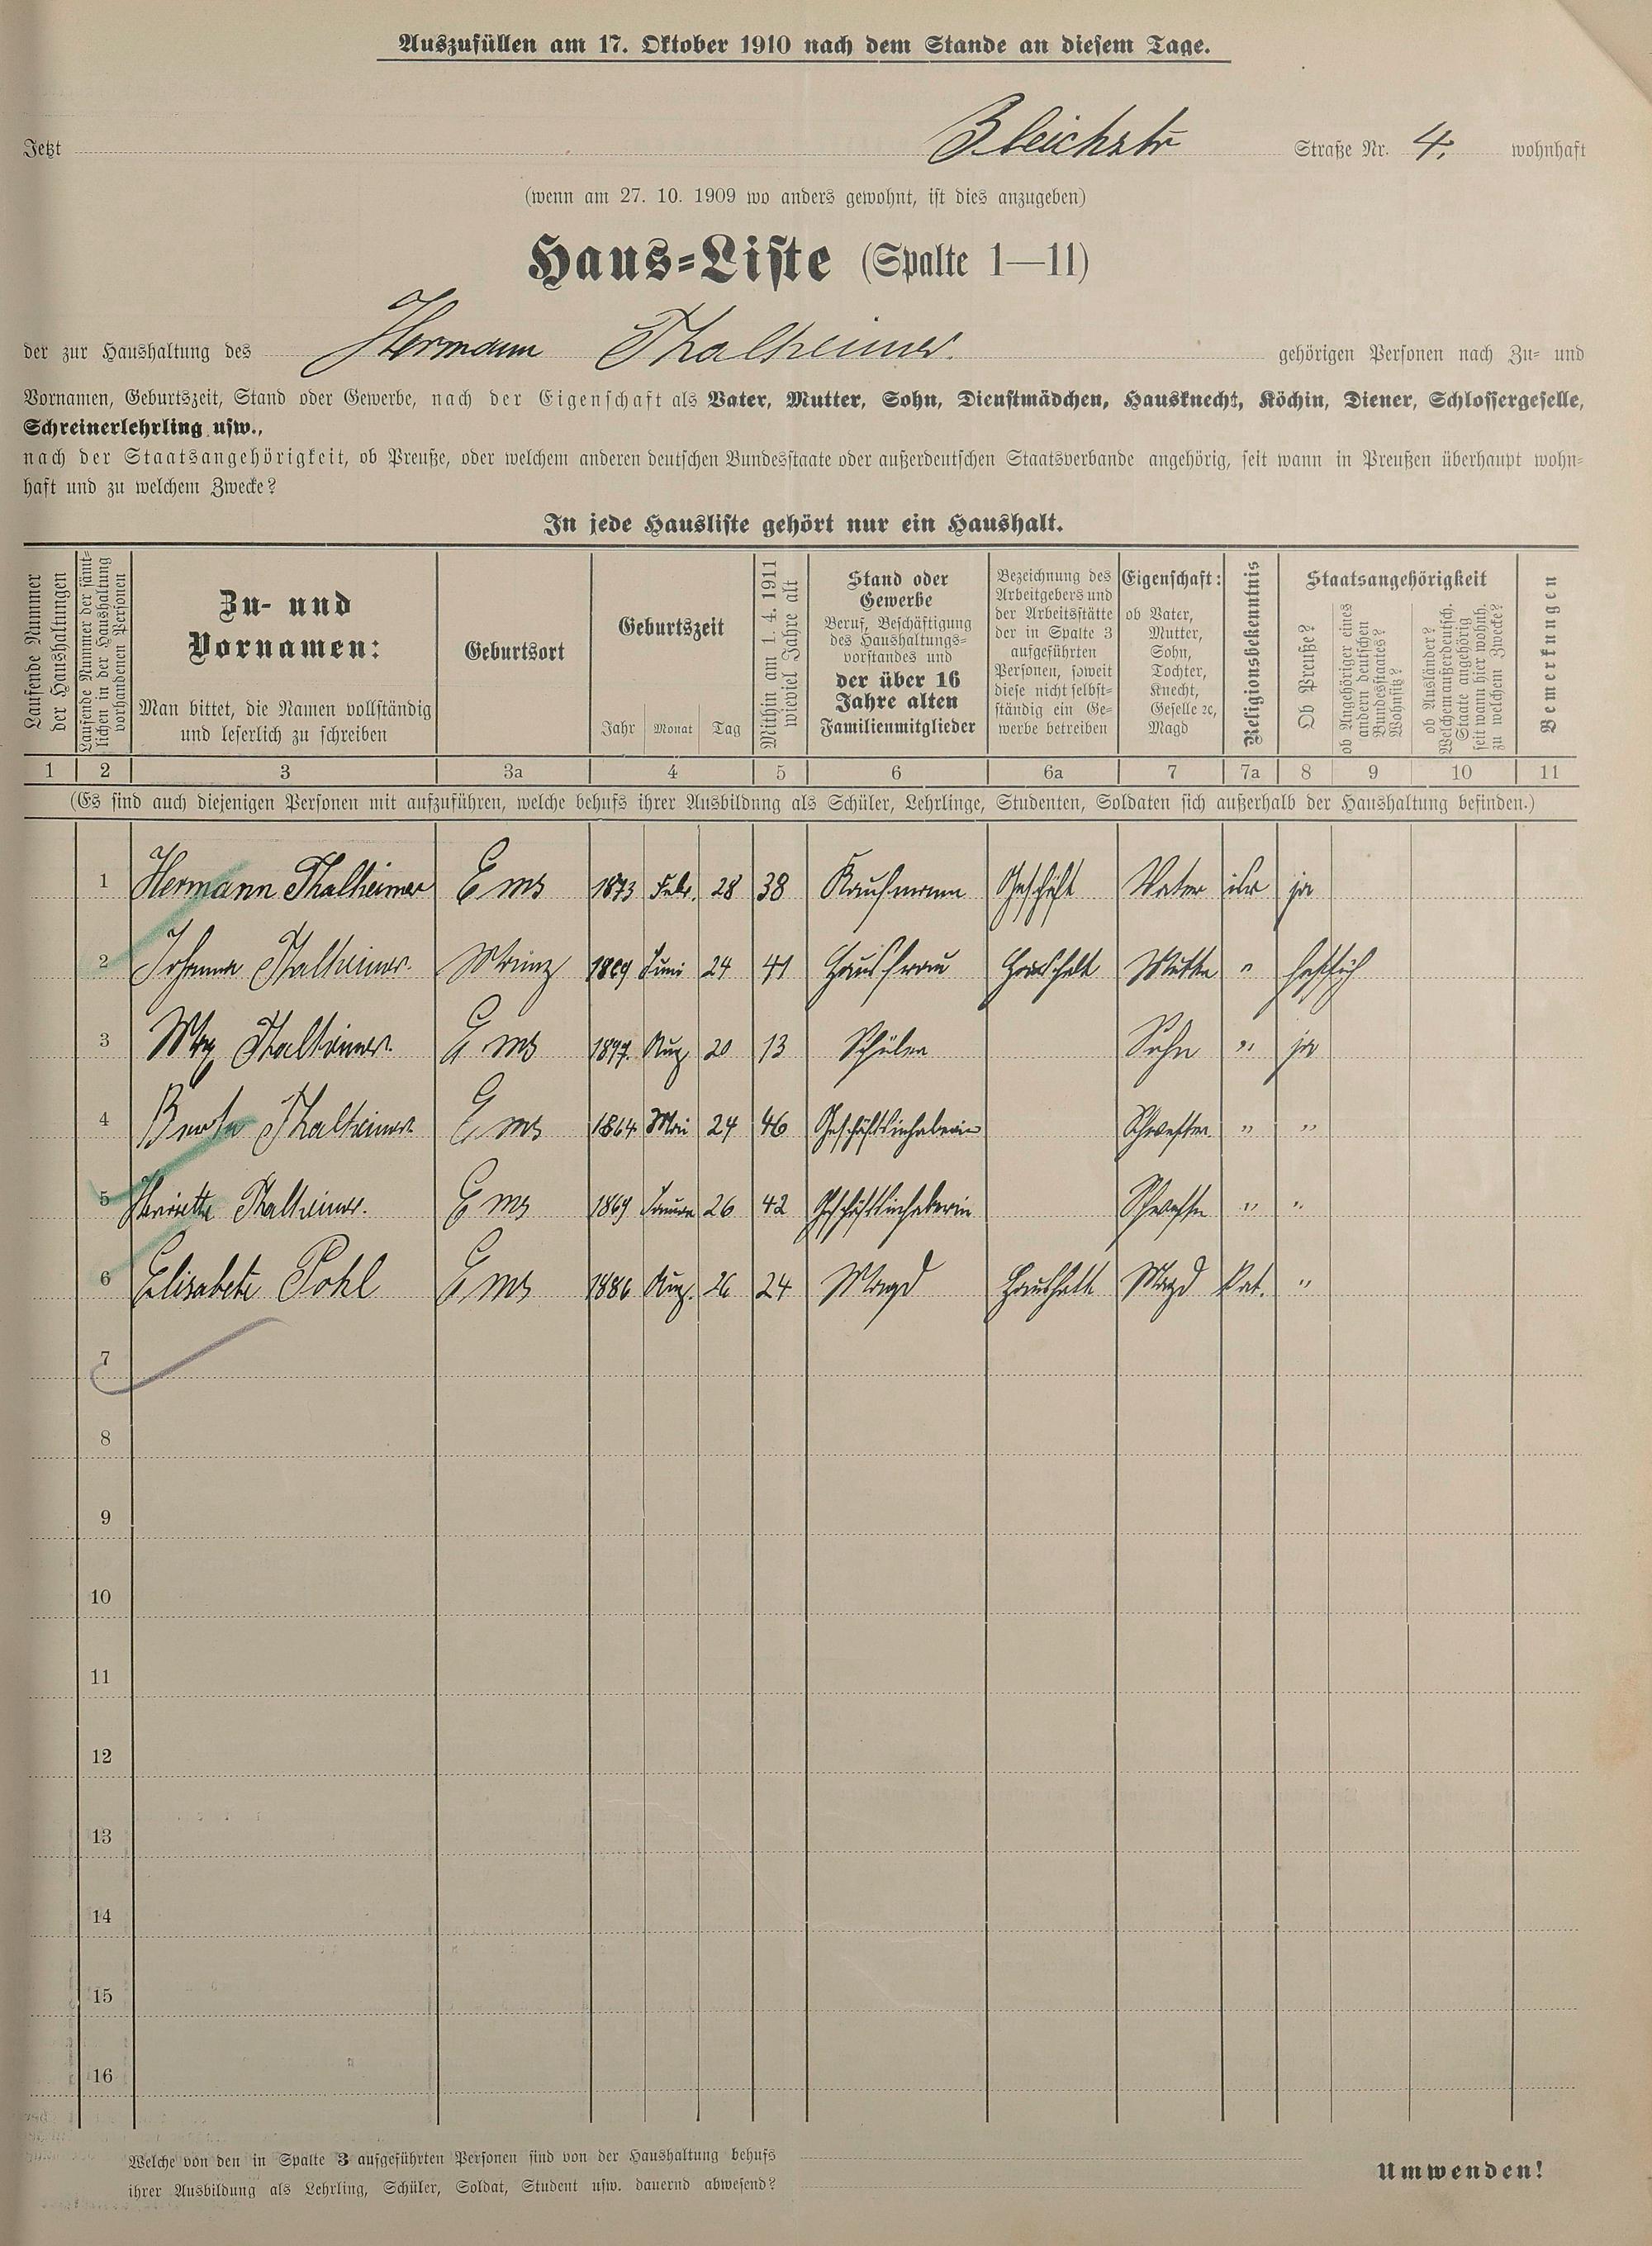 Auszufüllen am 17. Oktober 1910 nach dem Stande an diesem Tage.
Jetzt Bleichstr Straße Nr. 4. wohnhaft
(wenn am 27. 10. 1909 wo anders gewohnt, ist dies anzugeben)
Haus-Liste (Spalte 1—11)
der zur Haushaltung des Hermann Thalheimer. gehörigen Personen nach Zu- und
Vornamen, Geburtszeit, Stand oder Gewerbe, nach der Eigenschaft als Vater, Mutter, Sohn, Dienstmädchen, Hausknecht, Köchin, Diener, Schlossergeselle,
Schreinerlehrling usw.,
nach der Staatsangehörigkeit, ob Preuße, oder welchem anderen deutschen Bundesstaate oder außerdeutschen Staatsverbande angehörig, seit wann in Preußen überhaupt wohn-
haft und zu welchem Zwecke?
In jede Hausliste gehört nur ein Haushalt.
Laufende Nummer
der Haushaltungen
Laufende Nummer der sämt-
lichen in der Haushaltung
vorhandenen Personen
Zu- und
Vornamen:
Man bittet, die Namen vollständig
und leserlich zu schreiben
Geburtsort
Geburtszeit
Jahr Monat Tag
Mithin am 1. 4. 1911
wieviel Jahre alt
Stand oder
Gewerbe
Beruf, Beschäftigung
des Haushaltungs-
vorstandes und
der über 16
Jahre alten
Familienmitglieder
Bezeichnung des
Arbeitgebers und
der Arbeitsstätte
der in Spalte 3
aufgeführten
Personen, soweit
diese nicht selbst-
ständig ein Ge-
werbe betreiben
Eigenschaft:
ob Vater,
Mutter,
Sohn,
Tochter,
Knecht,
Geselle ꝛc,
Magd
Religionsbekenntnis
Staatsangehörigkeit
Ob Preuße?
ob Angehöriger eines
andern deutschen
Bundesstaates?
Wohnsitz?
ob Ausländer?
Welchem außerdeutsch.
Staate angehörig
seit wann hier wohnh.
zu welchem Zwecke?
Bemerkungen
1 2 3 3a 4 5 6 6a 7 7a 8 9 10 11
(Es sind auch diejenigen Personen mit aufzuführen, welche behufs ihrer Ausbildung als Schüler, Lehrlinge, Studenten, Soldaten sich außerhalb der Haushaltung befinden.)
1 Hermann Thalheimer Ems 1873 Febr. 28 38 Kaufmann Geschäft Vater isr ja
2 Johanna Thalheimer. Mainz 1869 Juni 24 41 Hausfrau Haushalt Mutter " hessisch
3 Max Thalheimer. Ems 1897. Aug. 20 13 Schüler Sohn " ja
4 Berta Thalheimer. Ems 1864 Mai 24 46 Geschäftsinhaberin Schwester. " "
5 Henriette Thalheimer. Ems 1869 Januar 26 42 Geschäftsinhaberin Schwester " "
6 Elisabete Pohl Ems 1886 Aug. 26 24 Magd Haushalt Magd Kat. "
7
8
9
10
11
12
13
14
15
16
Welche von den in Spalte 3 aufgeführten Personen sind von der Haushaltung behufs
ihrer Ausbildung als Lehrling, Schüler, Soldat, Student usw. dauernd abwesend?
Umwenden!